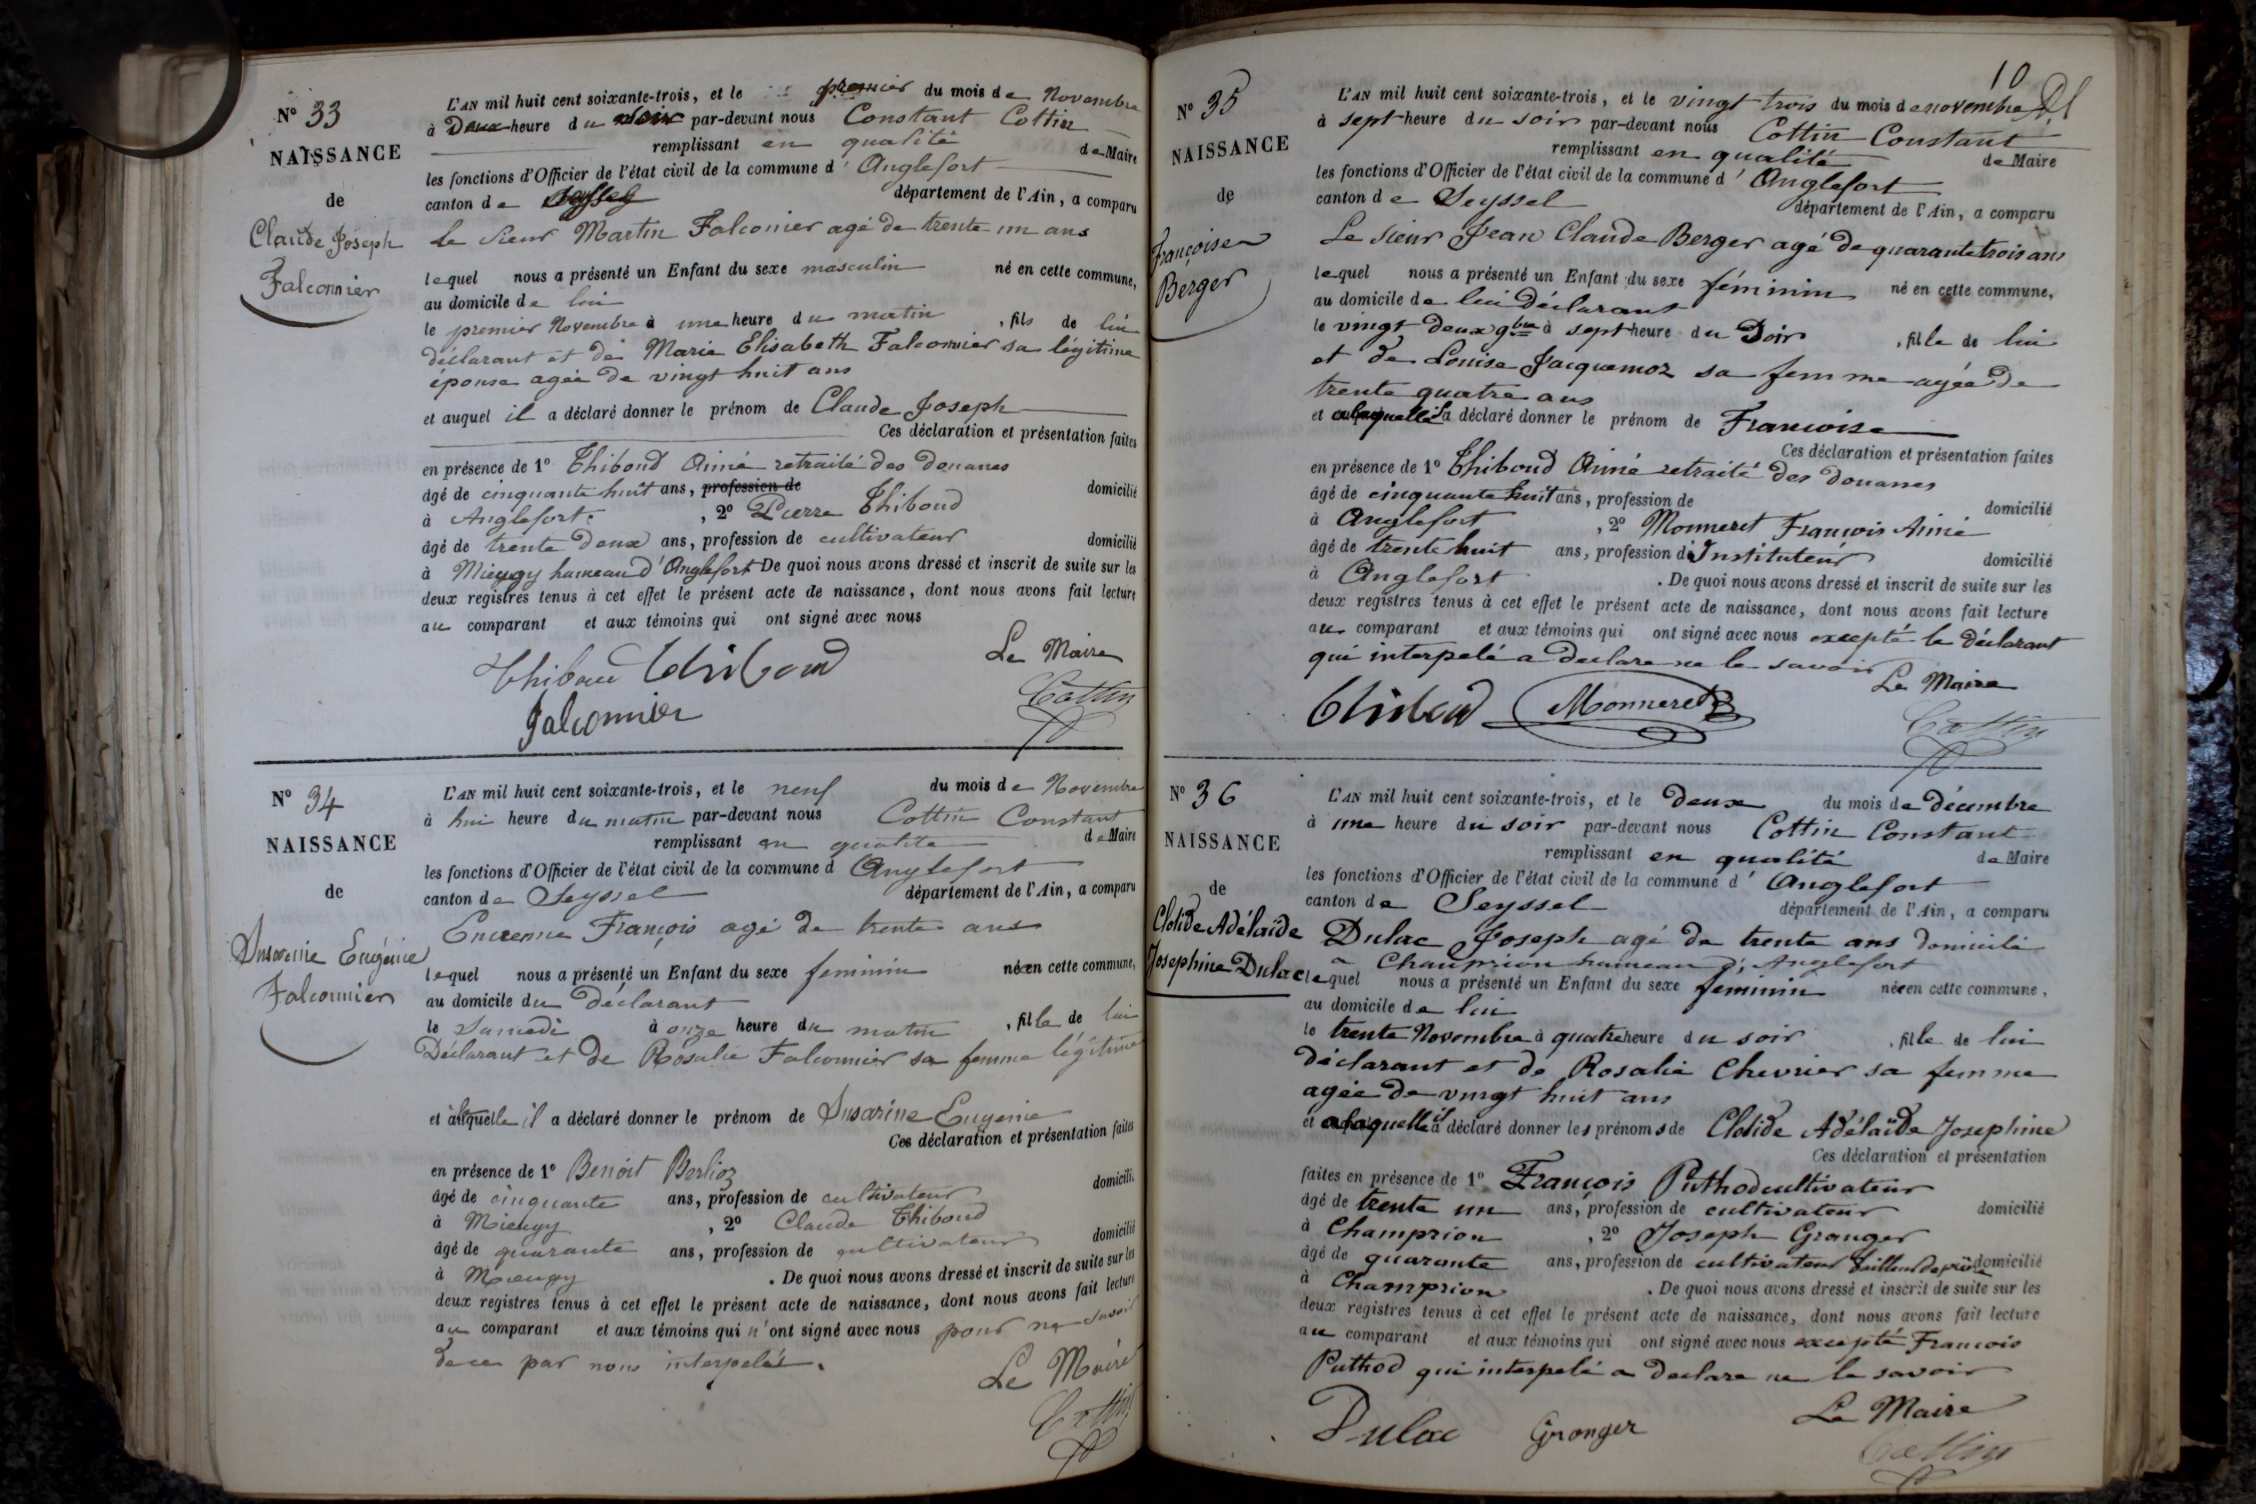 N° 33
NAISSANCE
de
Claude Joseph
Falconnier
L'AN mil huit cent soixante-trois, et le premier du mois de Novembre
à Deux heure du soir par-devant nous Constant Cottin
remplissant en qualité de Maire
les fonctions d'Officier de l'état civil de la commune d' Anglefort
canton de Seyssel département de l'Ain, a comparu
Le sieur Martin Falconier agé de trente un ans
lequel nous a présenté un Enfant du sexe masculin né en cette commune,
au domicile de lui
le premier Novembre à une heure du matin , fils de lui
déclarant et de Marie Elisabeth Falconnier sa légitime
épouse agée de vingt huit ans
et auquel il a déclaré donner le prénom de Claude Joseph
Ces déclaration et présentation faites
en présence de 1° Thiboud Aimé retraité des douanes
âgé de cinquante huit ans, profession de domicilié
à Anglefort , 2° Pierre Thiboud
âgé de trente deux ans, profession de cultivateur domicilié
à Mieugy hameau d'Anglefort De quoi nous avons dressé et inscrit de suite sur les
deux registres tenus à cet effet le présent acte de naissance, dont nous avons fait lecture
au comparant et aux témoins qui ont signé avec nous
Le Maire
Thiboud Thiboud
Cottin
Falconnier
N° 34
NAISSANCE
de
Eugénie
Falconnier
L'AN mil huit cent soixante-trois, et le neuf du mois de Novembre
à hui heure du matin par-devant nous Cottin Constant
remplissant en qualité de Maire
les fonctions d'Officier de l'état civil de la commune d Anglefort
canton de Seyssel département de l'Ain, a comparu
François agé de trente ans
lequel nous a présenté un Enfant du sexe feminin née en cette commune,
au domicile du déclarant
le Samedi à onze heure du matin , fille de lui
Déclarant et de Rosalie Falconnier sa femme légitime
et à laquelle il a déclaré donner le prénom de Susarine Eugenie
Ces déclaration et présentation faites
en présence de 1° Benoit Berlioz
âgé de cinquante ans, profession de cultivateur domicilié
à Mieugy , 2° Claude Thiboud
âgé de quarante ans, profession de cultivateur domicilié
à Mieugy . De quoi nous avons dressé et inscrit de suite sur les
deux registres tenus à cet effet le présent acte de naissance, dont nous avons fait lecture
au comparant et aux témoins qui n'ont signé avec nous pour ne savoir
de ce par nous interpelés.
Le Maire
Cottin
10
N° 35
NAISSANCE
de
Françoise
Berger
L'AN mil huit cent soixante-trois, et le vingt trois du mois de novembre
à sept heure du soir par-devant nous Cottin Constant
remplissant en qualité de Maire
les fonctions d'Officier de l'état civil de la commune d' Anglefort
canton de Seyssel département de l'Ain, a comparu
Le sieur Jean Claude Berger agé de quarante trois ans
lequel nous a présenté un Enfant du sexe féminin né en cette commune,
au domicile de lui déclarant
le vingt deux 9bre à sept heure du Soir , fille de lui
et de Louise Jacquemoz sa femme agée de
trente quatre ans
et à laquelle il a déclaré donner le prénom de Francoise
Ces déclaration et présentation faites
en présence de 1° Thiboud Aimé retraité des douanes
âgé de cinquante huit ans, profession de domicilié
à Anglefort , 2° Monneret François Aimé
âgé de trente huit ans, profession d'Instituteur domicilié
à Anglefort . De quoi nous avons dressé et inscrit de suite sur les
deux registres tenus à cet effet le présent acte de naissance, dont nous avons fait lecture
au comparant et aux témoins qui ont signé avec nous excepté le déclarant
qui interpelé a declare ne le savoir
Le Maire
Thiboud Monneret
Cottin
N° 36
NAISSANCE
de
Clotide Adélaïde
Josephine Dulac
L'AN mil huit cent soixante-trois, et le Deux du mois de décembre
à une heure du soir par-devant nous Cottin Constant
remplissant en qualité de Maire
les fonctions d'Officier de l'état civil de la commune d' Anglefort
canton de Seyssel département de l'Ain, a comparu
Dulac Joseph agé de trente ans domicilié
à Champrion hameau d'Anglefort
lequel nous a présenté un Enfant du sexe feminin née en cette commune,
au domicile de lui
le trente Novembre à quatre heure du soir , fille de lui
déclarant et de Rosalie Chevrier sa femme
agée de vingt huit ans
et a laquelle il a déclaré donner les prénoms de Clotide Adélaïde Josephine
Ces déclaration et présentation
faites en présence de 1° François Puthod cultivateur
âgé de trente un ans, profession de cultivateur domicilié
à Champrion , 2° Joseph Granger
âgé de quarante ans, profession de cultivateur domicilié
à Champrion . De quoi nous avons dressé et inscrit de suite sur les
deux registres tenus à cet effet le présent acte de naissance, dont nous avons fait lecture
au comparant et aux témoins qui ont signé avec nous excepté François
Puthod qui interpelé a declare ne le savoir
Le Maire
Dulac Granger
Cottin